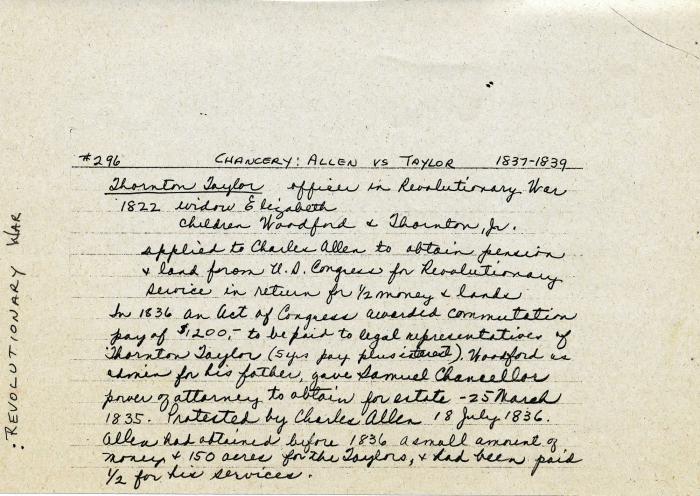 #296 CHANCERY: ALLEN VS TAYLOR 1837-1839
Thornton Taylor officer in Revolutionary War
1822 widow Elizabeth
children Woodford & Thornton, Jr.
applied to Charles Allen to obtain pension
& land forom U.S. Congress for Revolutionary
Service in return for 1/2 money & lands
In 1836 an Act of Congress awarded commutation
pay of $1200,- to be paid to legal representatives of
Thornton Taylor (5 yrs pay plus interest). Woodford as
admin for his father, gave Samuel Chancellor
power of attorney to obtain for estate - 25 March
1835. Protested by Charles Allen 18 July 1836.
Allen had obtained before 1836 a small amount of
money & 150 acres for the Taylors, & had been paid
1/2 for his services.
: REVOLUTIONARY WAR